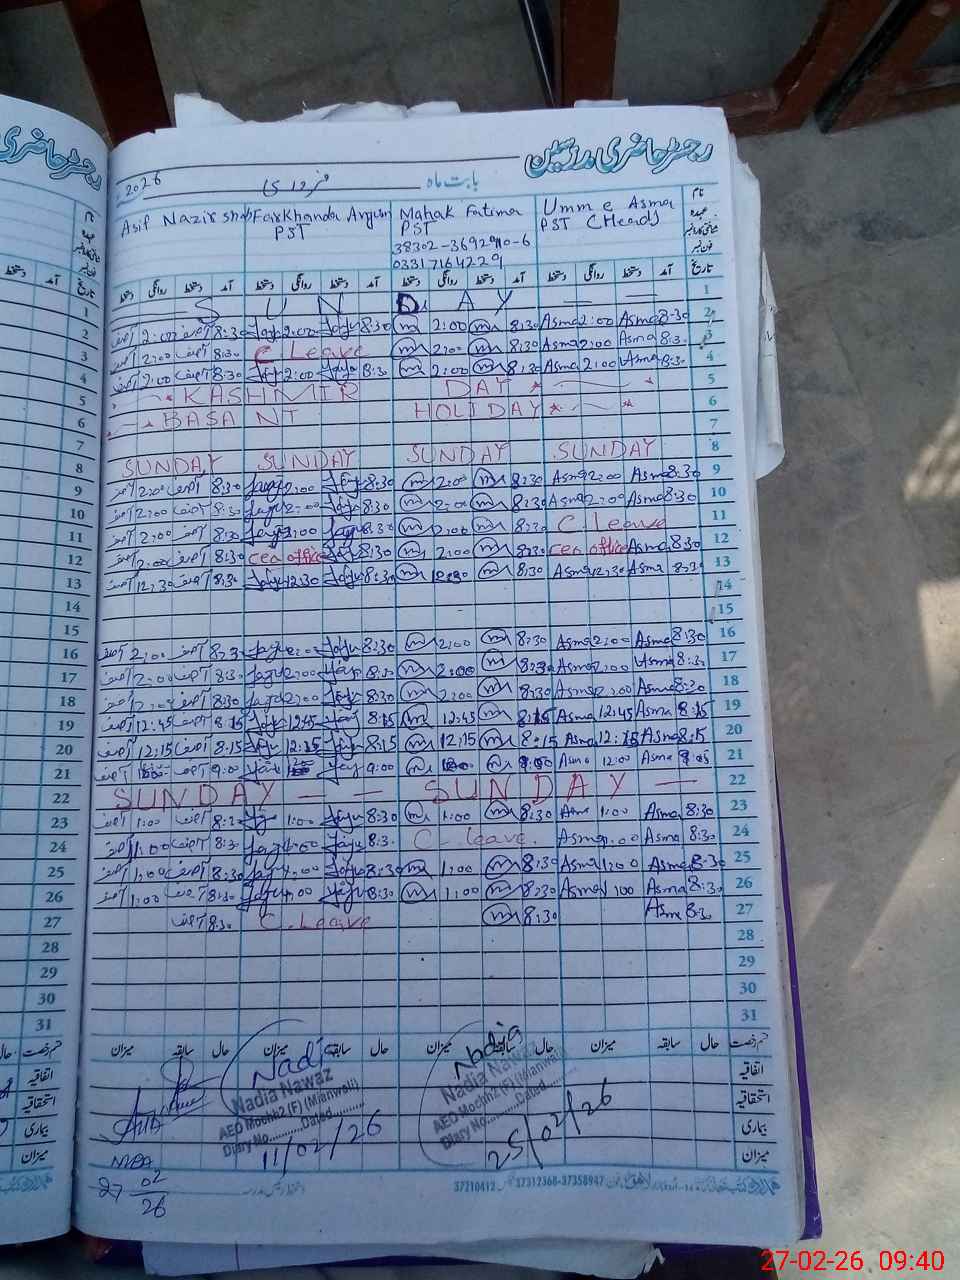 رجسٹر حاضری مدرسین
بابت ماہ فروری 2026
نام
عہدہ
شناختی کارڈ نمبر
فون نمبر
Asif Nazir Farkhanda Anjum Mahak Fatima Umm e Asma
PST PST PST (Head)
38302-3692910-6
03317164229
دستخط روانگی دستخط آمد دستخط روانگی دستخط آمد دستخط روانگی دستخط آمد دستخط روانگی دستخط آمد تاریخ
S U N D A Y 1
آصف 2:00 آصف 8:30 2:00 8:30 m 2:00 m 8:30 Asma 2:00 Asma 8:30 2
آصف 2:00 آصف 8:30 C. Leave m 2:00 m 8:30 Asma 2:00 Asma 8:30 3
آصف 2:00 آصف 8:30 2:00 8:30 m 2:00 m 8:30 Asma 2:00 Asma 8:30 4
KASHMIR DAY 5
BASANT HOLIDAY 6
7
SUNDAY SUNDAY SUNDAY SUNDAY 8
آصف 2:00 آصف 8:30 2:00 8:30 m 2:00 m 8:30 Asma 2:00 Asma 8:30 9
آصف 2:00 آصف 8:30 2:00 8:30 m 2:00 m 8:30 Asma 2:00 Asma 8:30 10
آصف 2:00 آصف 8:30 2:00 8:30 m 2:00 m 8:30 C. Leave 11
آصف 2:00 آصف 8:30 cea office 8:30 m 2:00 m 8:30 cea office Asma 8:30 12
آصف 12:30 آصف 8:30 12:30 8:30 m 12:30 m 8:30 Asma 12:30 Asma 8:30 13
14
15
آصف 2:00 آصف 8:30 2:00 8:30 m 2:00 m 8:30 Asma 2:00 Asma 8:30 16
آصف 2:00 آصف 8:30 2:00 8:30 m 2:00 m 8:30 Asma 2:00 Asma 8:30 17
آصف 2:00 آصف 8:30 2:00 8:30 m 2:00 m 8:30 Asma 2:00 Asma 8:30 18
آصف 12:45 آصف 8:15 12:45 8:15 m 12:45 m 8:15 Asma 12:45 Asma 8:15 19
آصف 12:15 آصف 8:15 12:15 8:15 m 12:15 m 8:15 Asma 12:15 Asma 8:15 20
آصف آصف 9:00 9:00 m m 9:00 Asma 12:00 Asma 9:05 21
SUNDAY - - SUNDAY - 22
آصف 1:00 آصف 8:30 1:00 8:30 m 1:00 m 8:30 Asma 1:00 Asma 8:30 23
آصف 1:00 آصف 8:30 1:00 8:30 C. leave. Asma 1:00 Asma 8:30 24
آصف 1:00 آصف 8:30 1:00 8:30 m 1:00 m 8:30 Asma 1:00 Asma 8:30 25
آصف 1:00 آصف 8:30 1:00 8:30 m 1:00 m 8:30 Asma 1:00 Asma 8:30 26
آصف 8:30 C. Leave m 8:30 Asma 8:30 27
28
29
30
31
میزان سابقہ حال میزان سابقہ حال میزان سابقہ حال میزان سابقہ حال قسم رخصت
اتفاقیہ
استحقاقیہ
بیماری
میزان
Nadia
Nadia Nawaz
AEO Mochh2 (F) (Mianwali)
Diary No..........Dated..........
11/02/26
Nadia
Nadia Nawaz
AEO Mochh2 (F) (Mianwali)
Diary No..........Dated..........
25/02/26
MEA
27 02
26
37210412 37312368-37358947
27-02-26 09:40